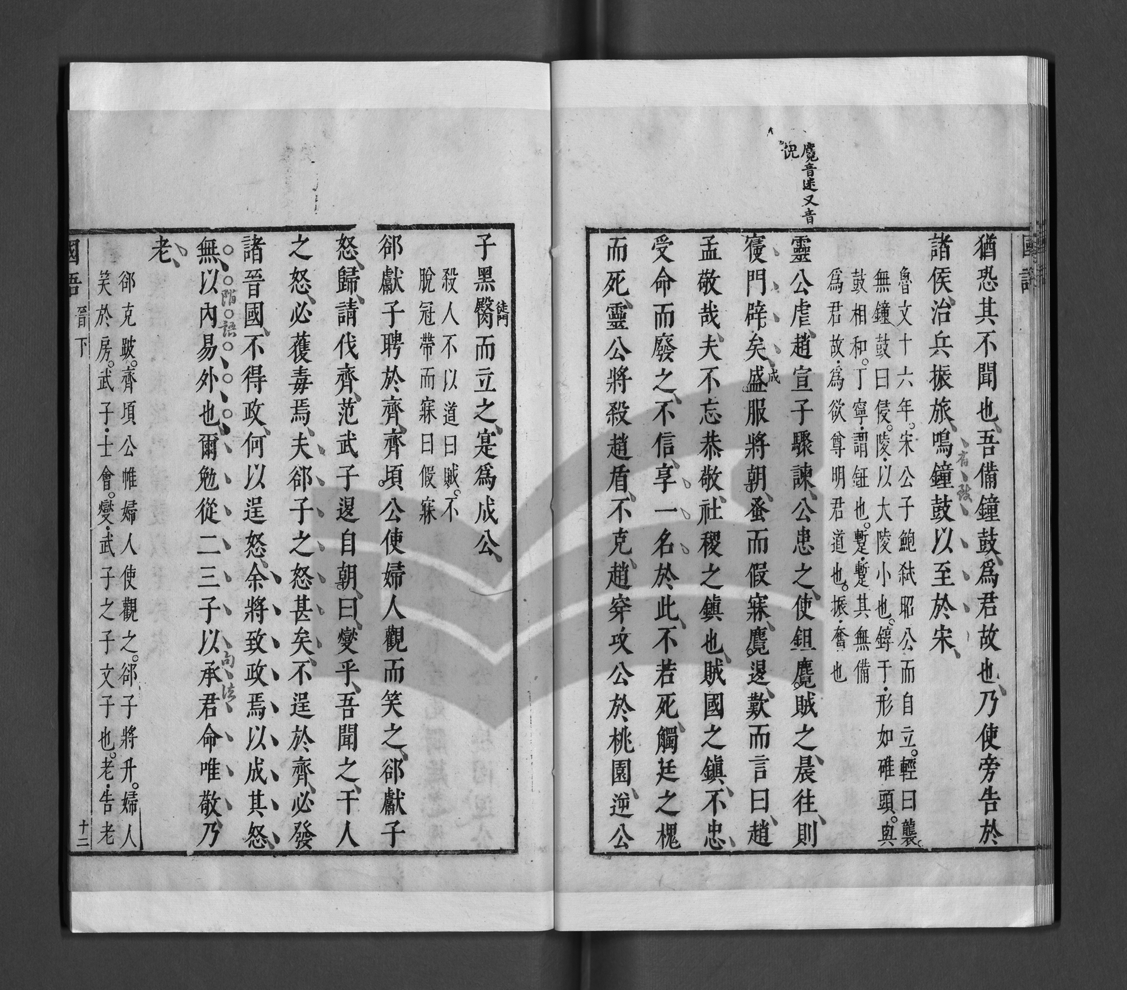 猶恐其不聞也吾備鐘鼓爲君故也乃使旁告於
諸侯治兵振旅鳴鐘鼓以至於宋
魯文十六年宋公子鮑弒昭公而自立輕曰襲
無鐘鼓曰侵陵以大陵小也錞于形如碓頭與
鼓相和丁寧謂鉦也蹔蹔其無備
爲君故爲欲尊明君道也振奮也
靈公虐趙宣子驟諫公患之使鉏麑賊之晨往則
寑門辟矣盛服將朝蚤而假寐麑退歎而言曰趙
成
孟敬哉夫不忘恭敬社稷之鎮也賊國之鎮不忠
受命而廢之不信享一名於此不若死觸廷之槐
而死靈公將殺趙盾不克趙穿攻公於桃園逆公
麑音迷又音
倪
國語
子黑臋而立之寔爲成公
徒門
殺人不以道曰賊不
脫冠帶而寐曰假寐
郤獻子聘於齊齊頃公使婦人觀而笑之郤獻子
怒歸請伐齊范武子退自朝曰燮乎吾聞之干人
之怒必蒦毒焉夫郤子之怒甚矣不逞於齊必發
諸晉國不得政何以逞怒余將致政焉以成其怒
無以內易外也爾勉從二三子以承君命唯敬乃
老
郤克跛齊頃公帷婦人使觀之郤子將升婦人
笑於房武子士會燮武子之子文子也老告老
國語
晉下
十二